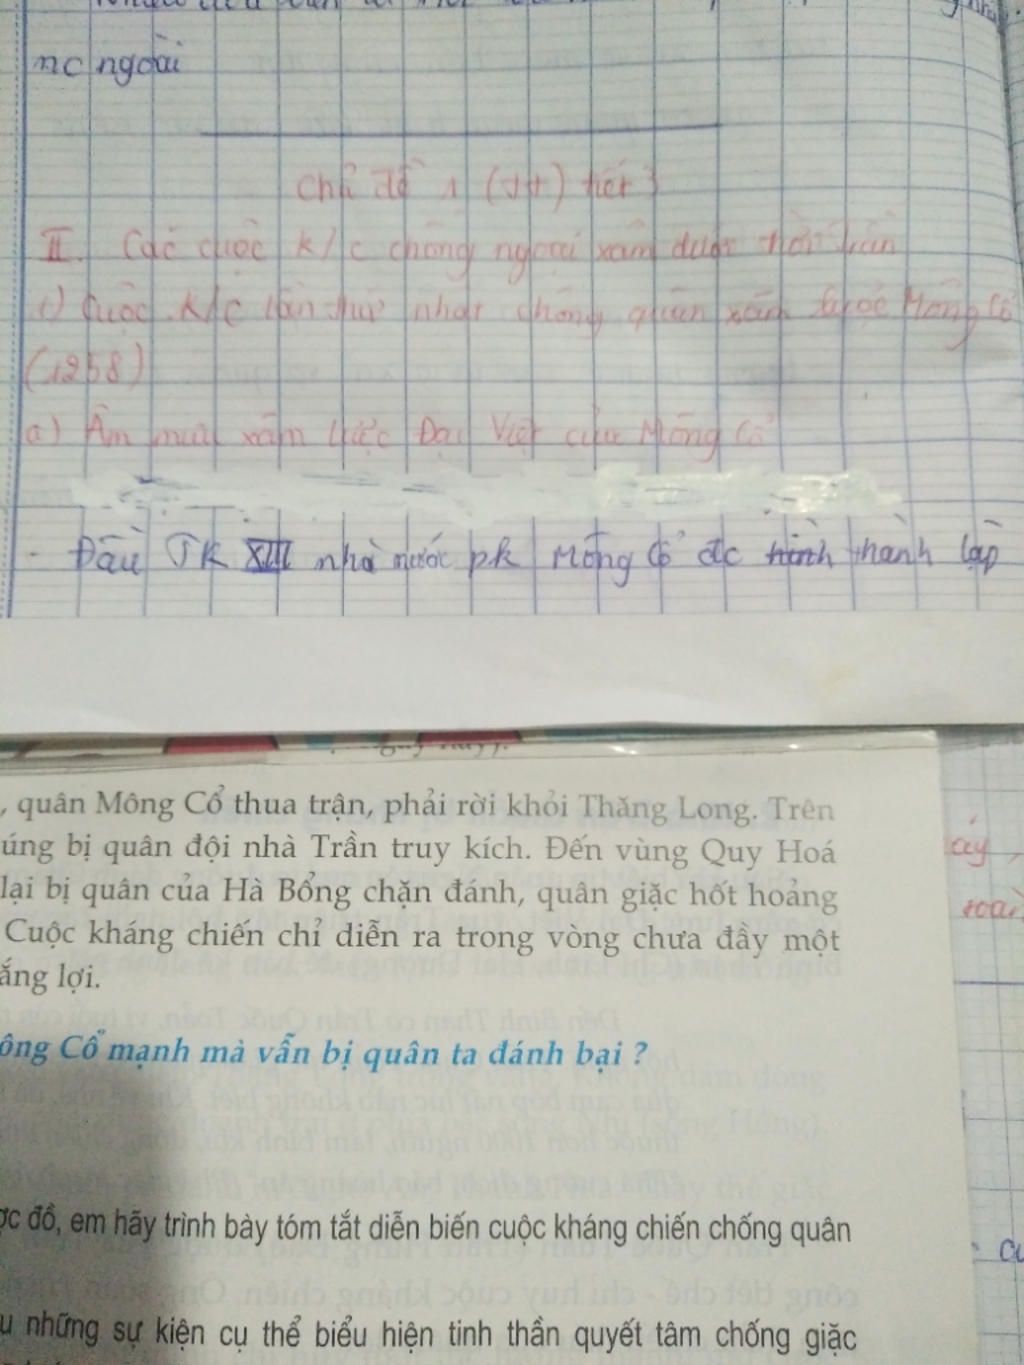 nc ngoài
Chủ đề 1 (tt) tiết 3
II. Các cuộc k/c chống ngoại xâm dưới thời Trần
1) Cuộc k/c lần thứ nhất chống quân xâm lược Mông Cổ
(1258)
a) Âm mưu xâm lược Đại Việt của Mông Cổ
- Đầu TK XIII nhà nước pk Mông Cổ đc hình thành lập
, quân Mông Cổ thua trận, phải rời khỏi Thăng Long. Trên
úng bị quân đội nhà Trần truy kích. Đến vùng Quy Hoá
lại bị quân của Hà Bổng chặn đánh, quân giặc hốt hoảng
Cuộc kháng chiến chỉ diễn ra trong vòng chưa đầy một
ắng lợi.
ông Cổ mạnh mà vẫn bị quân ta đánh bại ?
ợc đồ, em hãy trình bày tóm tắt diễn biến cuộc kháng chiến chống quân
u những sự kiện cụ thể biểu hiện tinh thần quyết tâm chống giặc